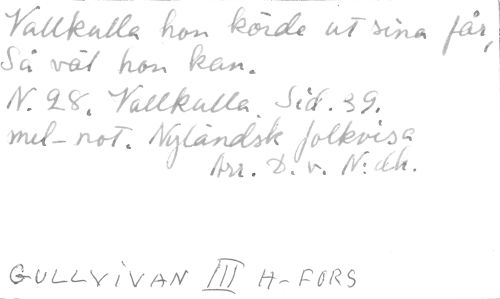 Vallkulla hon körde ut sina får,
Så väl hon kan.
N. 28. Vallkulla. Sid. 39.
mel-not. Nyländsk folkvisa
Arr. D. v. N:dh.
GULLVIVAN III H-FORS